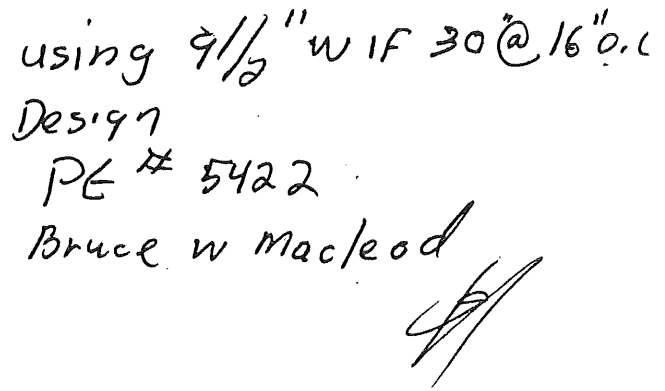 using 9 1/2" WIF 30"@ 16" O.C
Design
PE # 5422
Bruce W Macleod